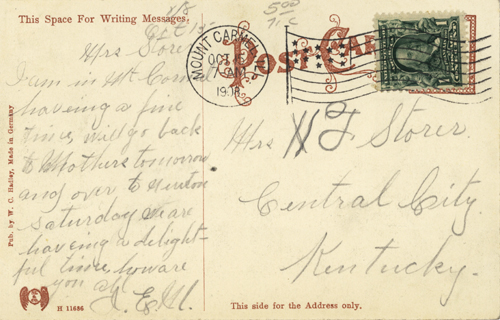 This Space For Writing Messages.
Oct 15-
500
Mrs Storer
I am in Mt Carmel
haveing a fine
time, will go back
to Mothers tomorrow
and over to Newton
saturday we are
haveing a delight-
ful time, how are
you all
J. E. M.
MOUNT CARMEL
OCT
7 AM
1908
POST CARD
Mrs H F Storer
Central City
Kentucky.
Pub. by W. C. Hadley, Made in Germany
H 11686
This side for the Address only.